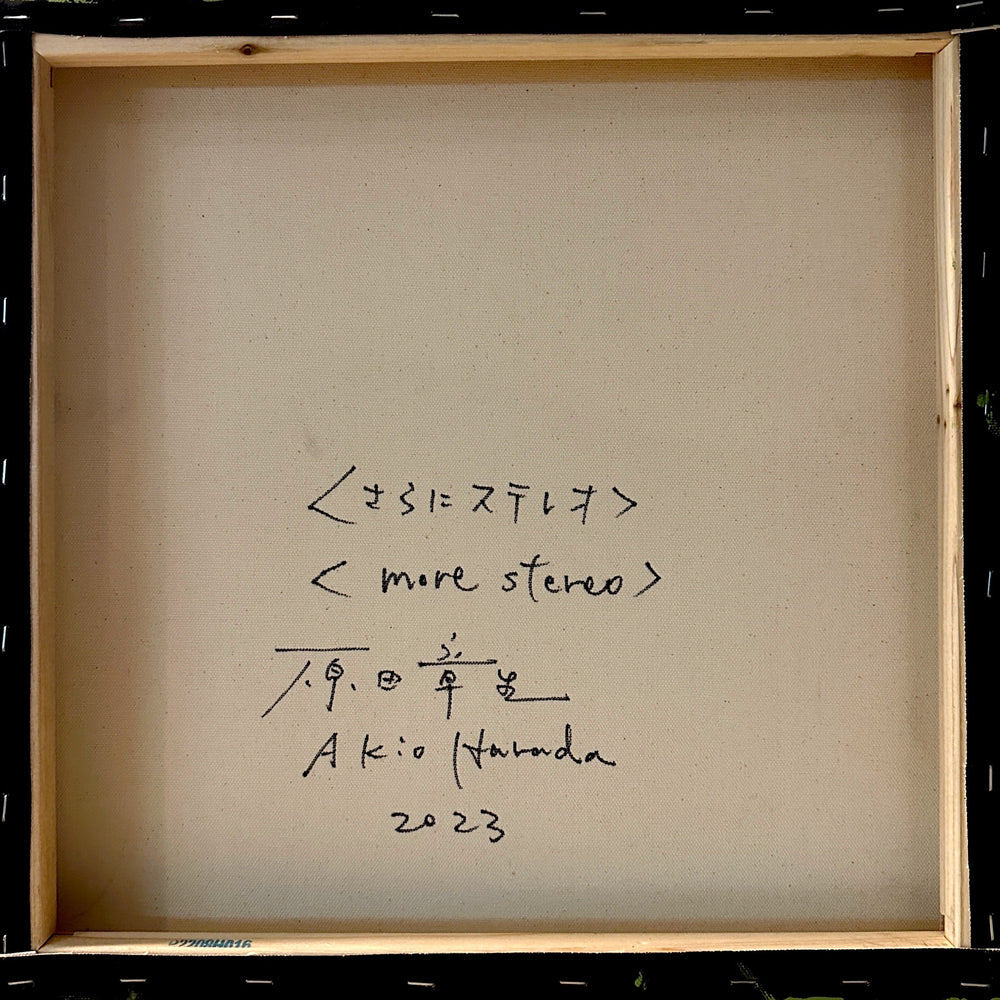 <さらにステレオ>
< more stereo>
原田章生
Akio Harada
2023